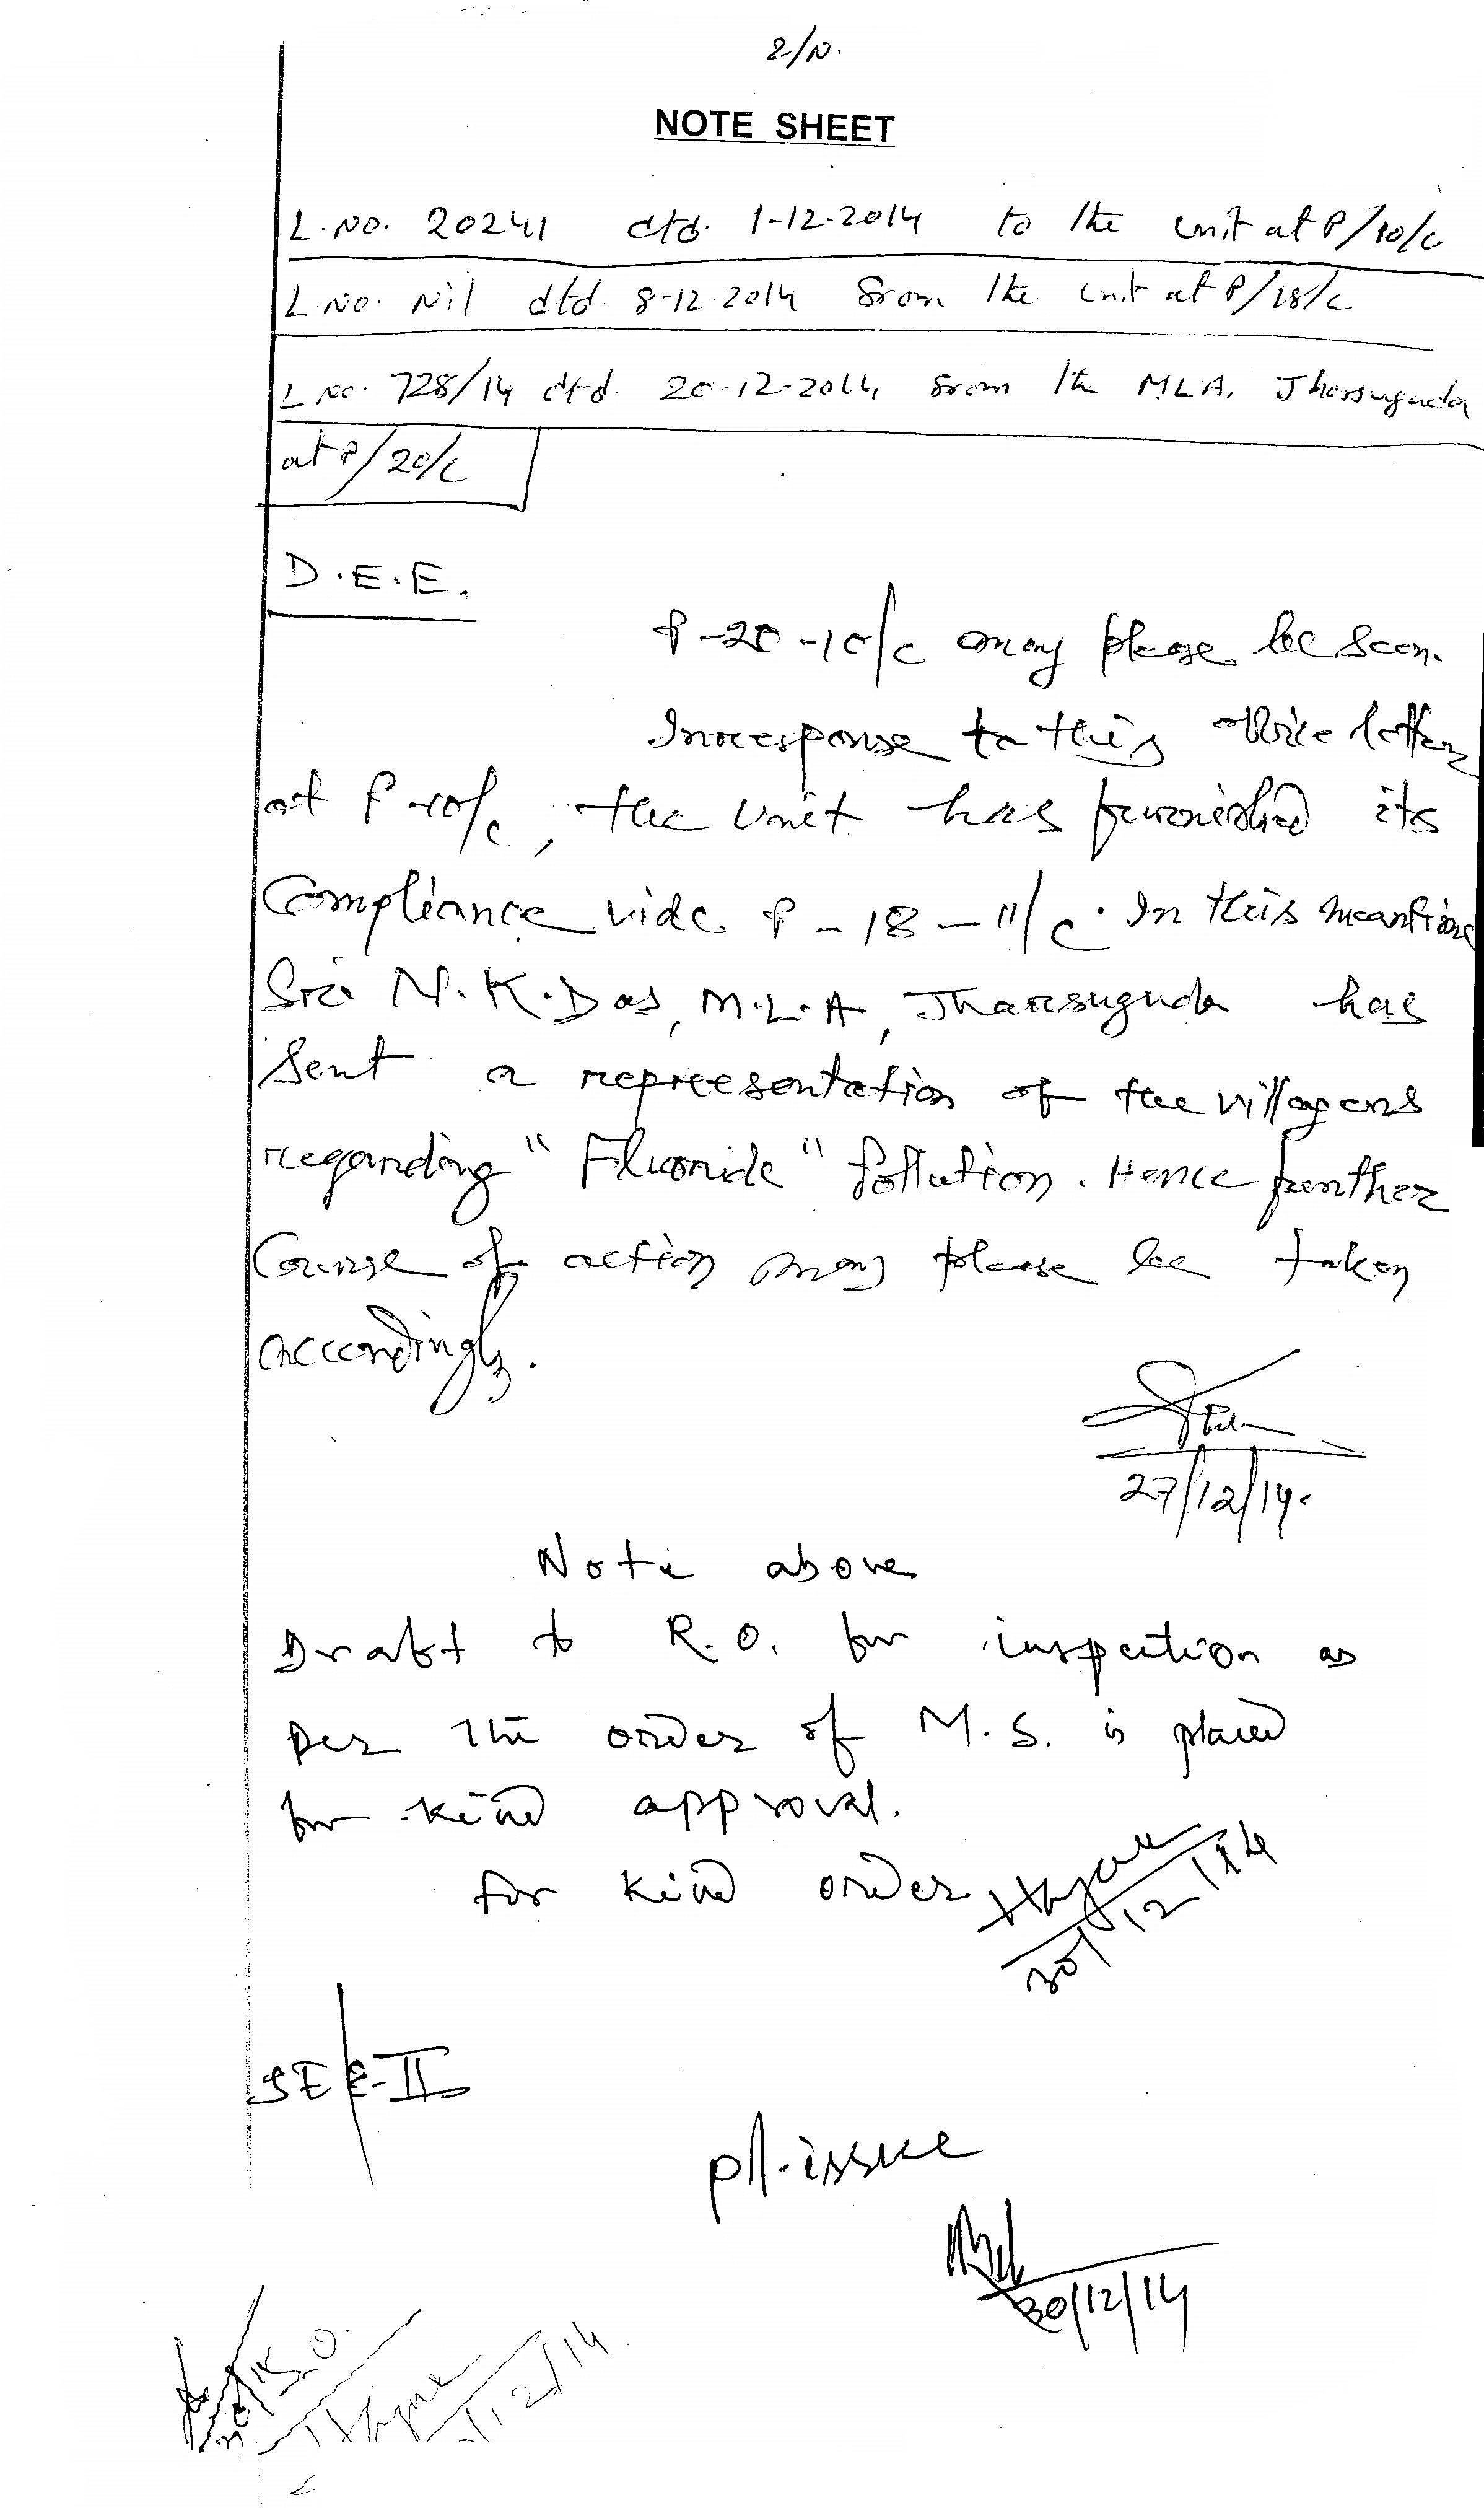 2/N.
NOTE SHEET
L.No. 20241 dtd. 1-12-2014 to the unit at P/10/c
L.No. Nil dtd. 8-12-2014 from the unit at P/18/c
L No. 728/14 dtd. 20-12-2014 from the M.L.A. Jharsuguda
at P/20/c
D.E.E.
P-20-10/c may please be seen.
In response to this office letter
at P-10/c, the Unit has furnished its
Compliance vide P-18-11/c. In this meantime
Sri N.K.Das, M.L.A, Jharsuguda has
sent a representation of the villagers
regarding "Fluoride" Pollution. Hence further
Course of action may please be taken
accordingly.
27/12/14.
Note above
Draft to R.O. for inspection as
per the order of M.S. is placed
for kind approval.
for kind order
30/12/14
SEE-II
pl. issue
30/12/14
12/14